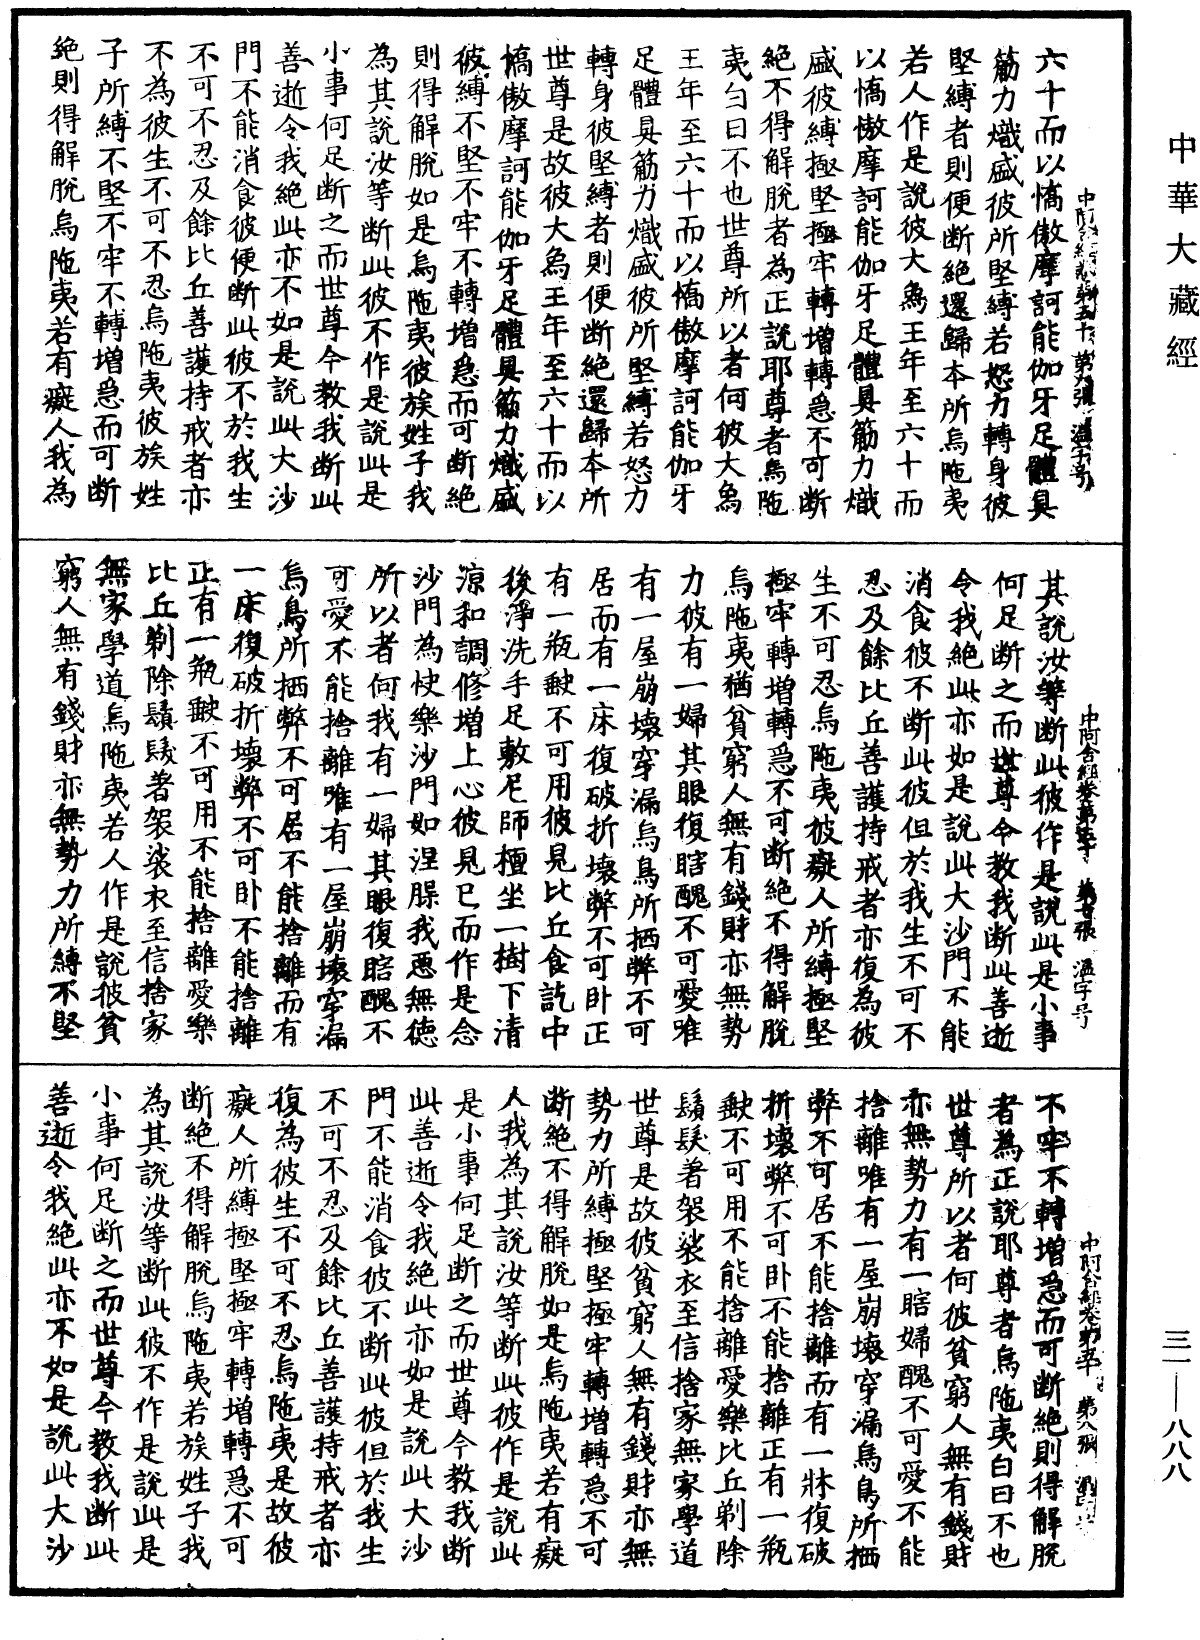 中華大藏經
六十而以憍傲摩訶能伽牙足體具
筋力熾盛彼所堅縛若怒力轉身彼
堅縛者則便斷絕還歸本所烏陁夷
若人作是說彼大烏王年至六十而
以憍傲摩訶能伽牙足體具筋力熾
盛彼縛極堅極牢轉增轉急不可斷
絕不得解脫者為正說耶尊者烏陁
夷白曰不也世尊所以者何彼大烏
王年至六十而以憍傲摩訶能伽牙
足體具筋力熾盛彼所堅縛若怒力
轉身彼堅縛者則便斷絕還歸本所
世尊是故彼大烏王年至六十而以
憍傲摩訶能伽牙足體具筋力熾盛
彼縛不堅不牢不轉增急而可斷絕
則得解脫如是烏陁夷彼族姓子我
為其說汝等斷此彼不作是說此是
小事何足斷之而世尊今教我斷此
善逝令我絕此亦不如是說此大沙
門不能消食彼便斷此彼不於我生
不可不忍及餘比丘善護持戒者亦
不為彼生不可不忍烏陁夷彼族姓
子所縛不堅不牢不轉增急而可斷
絕則得解脫烏陁夷若有癡人我為
其說汝等斷此彼作是說此是小事
何足斷之而世尊今教我斷此善逝
令我絕此亦如是說此大沙門不能
消食彼不斷此彼但於我生不可不
忍及餘比丘善護持戒者亦復為彼
生不可忍烏陁夷彼癡人所縛極堅
極牢轉增轉急不可斷絕不得解脫
烏陁夷猶貧窮人無有錢財亦無勢
力彼有一婦其眼復瞎醜不可愛唯
有一屋崩壞穿漏烏鳥所栖弊不可
居而有一床復破折壞弊不可卧正
有一瓶䤬不可用彼見比丘食訖中
後淨洗手足敷尼師檀坐一樹下清
涼和調修增上心彼見已而作是念
沙門為快樂沙門如涅槃我惡無德
所以者何我有一婦其眼復瞎醜不
可愛不能捨離唯有一屋崩壞穿漏
烏鳥所栖弊不可居不能捨離而有
一床復破折壞弊不可卧不能捨離
正有一瓶䤬不可用不能捨離愛樂
比丘剃除鬚髮著袈裟衣至信捨家
無家學道烏陁夷若人作是說彼貧
窮人無有錢財亦無勢力所縛不堅
不牢不轉增急而可斷絕則得解脫
者為正說耶尊者烏陁夷白曰不也
世尊所以者何彼貧窮人無有錢財
亦無勢力有一瞎婦醜不可愛不能
捨離唯有一屋崩壞穿漏烏鳥所栖
弊不可居不能捨離而有一牀復破
折壞弊不可卧不能捨離正有一瓶
䤬不可用不能捨離愛樂比丘剃除
鬚髮著袈裟衣至信捨家無家學道
世尊是故彼貧窮人無有錢財亦無
勢力所縛極堅極牢轉增轉急不可
斷絕不得解脫如是烏陁夷若有癡
人我為其說汝等斷此彼作是說此
是小事何足斷之而世尊今教我斷
此善逝令我絕此亦如是說此大沙
門不能消食彼不斷此彼但於我生
不可不忍及餘比丘善護持戒者亦
復為彼生不可不忍烏陁夷是故彼
癡人所縛極堅極牢轉增轉急不可
斷絕不得解脫烏陁夷若族姓子我
為其說汝等斷此彼不作是說此是
小事何足斷之而世尊今教我斷此
善逝令我絕此亦不如是說此大沙
三一—八八八